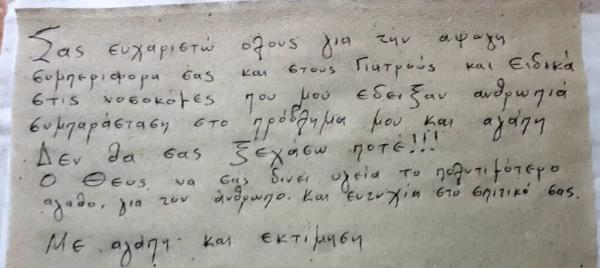 Σας ευχαριστώ ολους για την αψογη
συμπεριφορα σας και στους Γιατρούς και Ειδικά
στις νοσοκόμες που μού εδειξαν ανθρωπιά
συμπαράσταση στο πρόβλημα μου και αγάπη
Δεν θα σας ξεχάσω ποτέ!!!
Ο Θεος να σας δινει υγεία το πολυτιμότερο
αγαθο, για τον άνθρωπο. και ευτυχία στο σπιτικό σας.
Με αγάπη και εκτίμηση